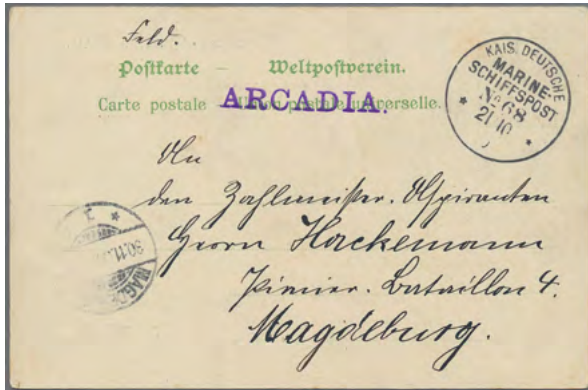 Feld.
Postkarte – Weltpostverein.
Carte postale – Union postale universelle.
ARCADIA.
KAIS. DEUTSCHE
MARINE-
SCHIFFSPOST
No 68
21/10
An
den Zahlmeister-Aspiranten
Herrn Hackemann
Pionier-Bataillon 4.
Magdeburg.
30.11.
MAGDE